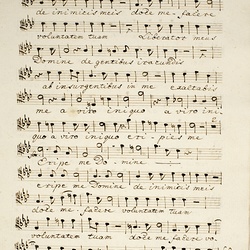 de inimitis meis dote me facere
voluntatem tuam liberator meis
Domine de gentibus iracundis
ab insurgentibus in me exaltabis
me a viro iniquo a viro ini
quo a viro iniquo eri pies me
Eripe me Domine
eripe me Domine de inimitis meis
dote me facere voluntatem tuam
voluntatem tuam dote me facere vo